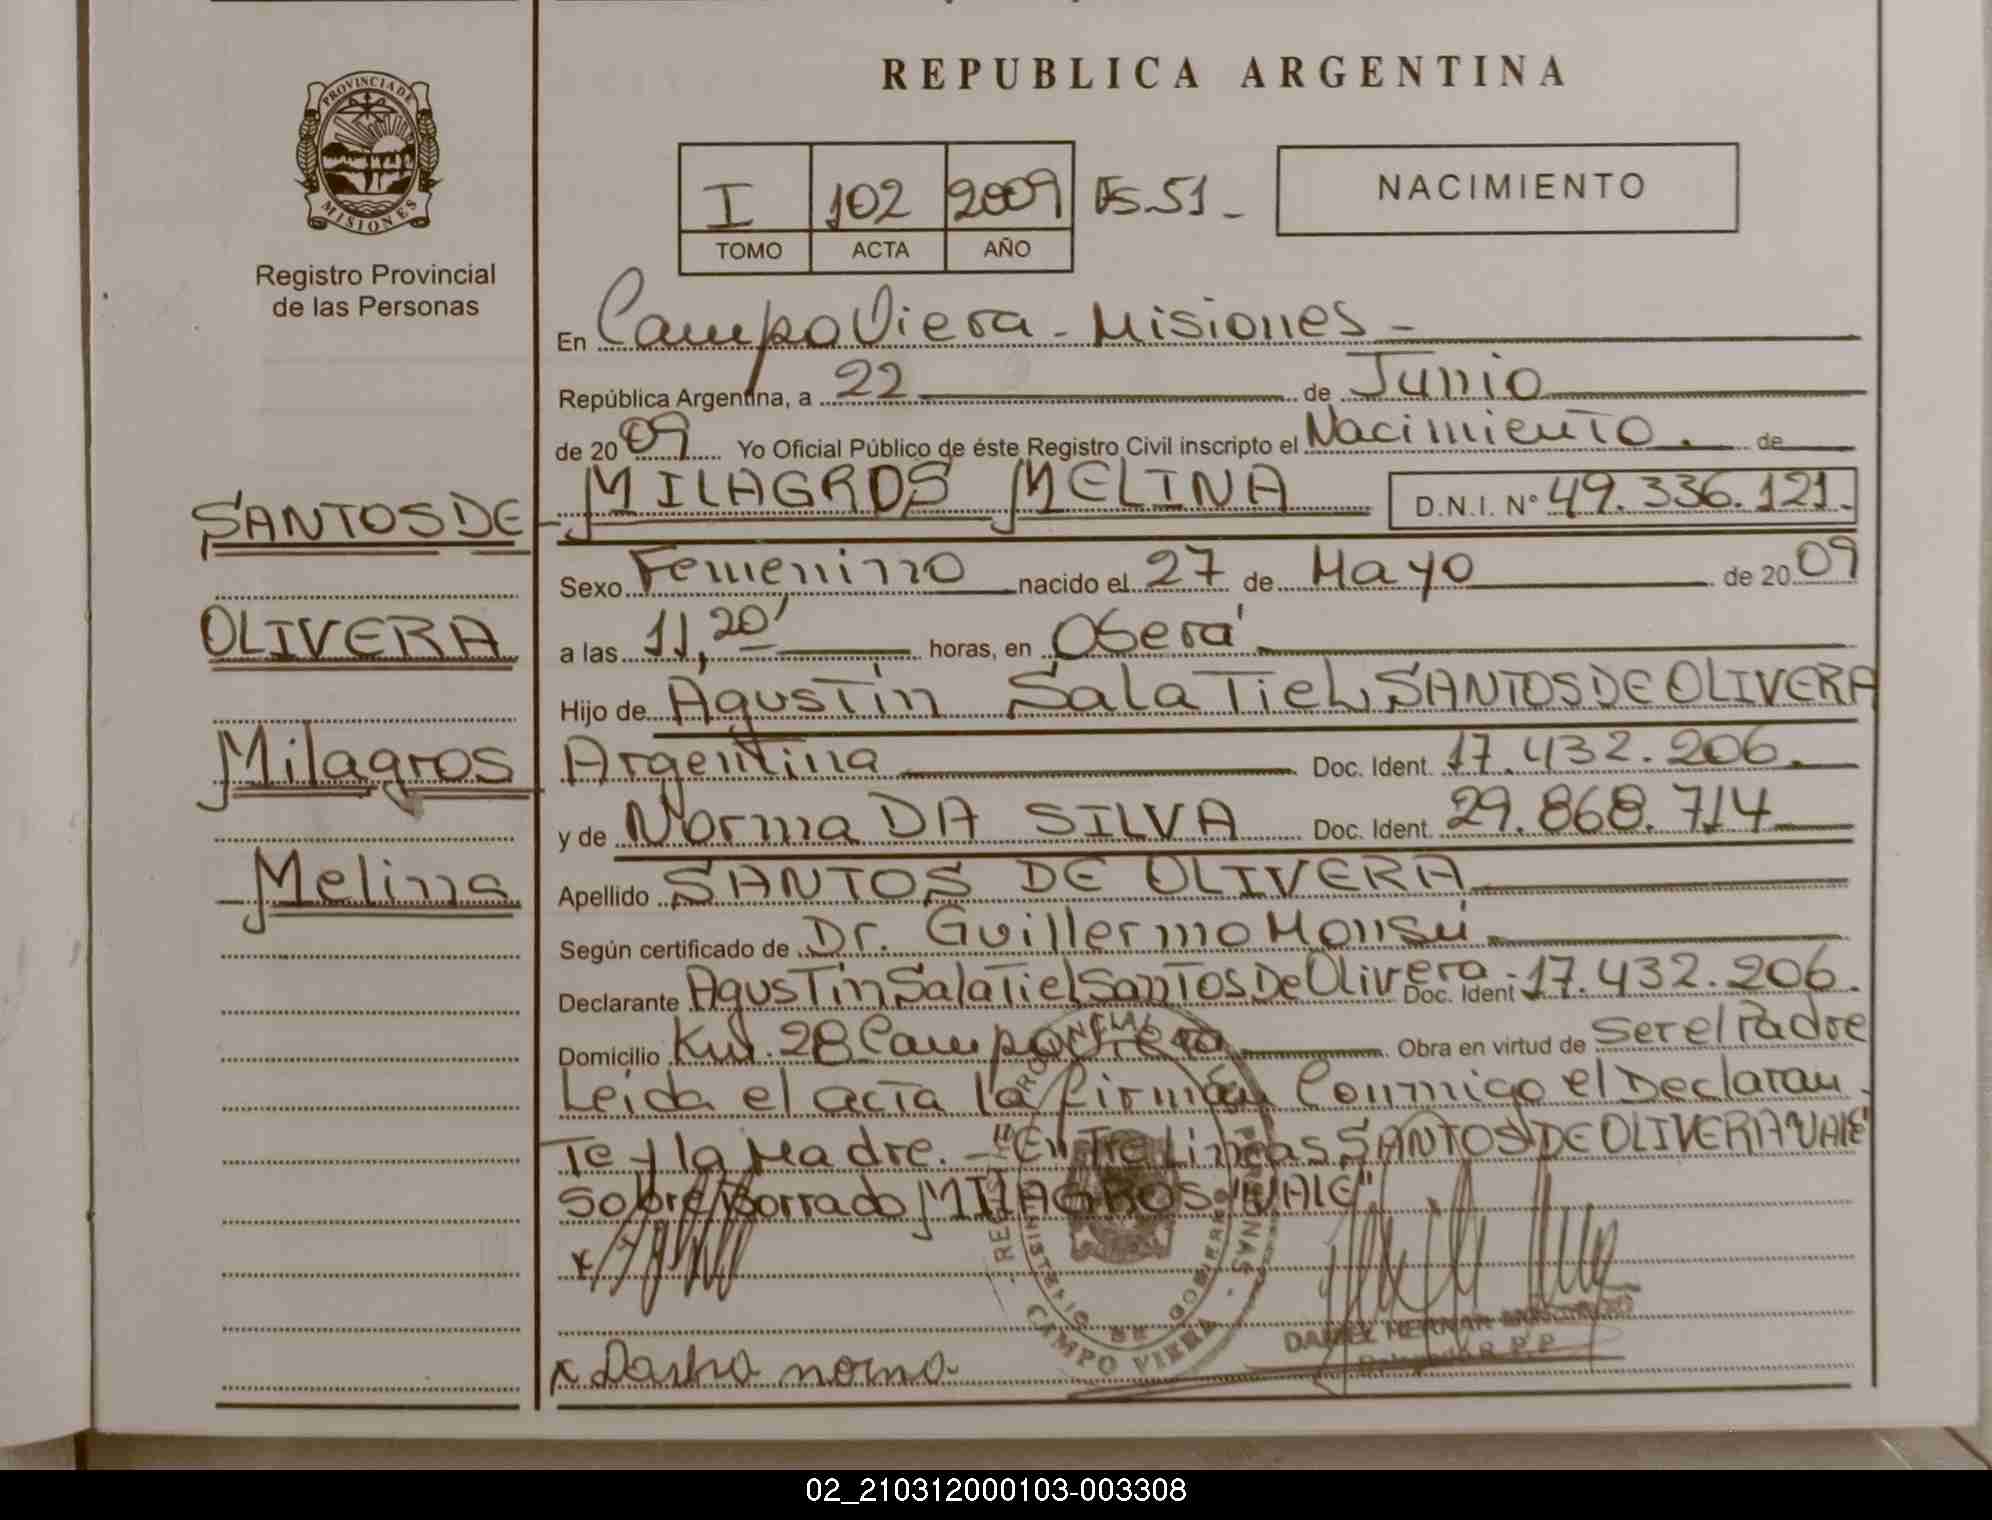 REPUBLICA ARGENTINA
PROVINCIA DE
MISIONES
Registro Provincial
de las Personas
I 102 2009 Fs. 51 -
TOMO ACTA AÑO
NACIMIENTO
SANTOS DE
OLIVERA
Milagros
Melina
En Campo Viera - Misiones -
República Argentina, a 22 de Junio
de 2009 Yo Oficial Público de éste Registro Civil inscripto el Nacimiento. de
MILAGROS MELINA D.N.I. Nº 49.336.121.
Sexo Femenino nacido el 27 de Mayo de 2009
a las 11,20' horas, en Oberá
Hijo de Agustin Salatiel, SANTOS DE OLIVERA
Argentina Doc. Ident. 17.432.206.
y de Norma DA SILVA Doc. Ident. 29.868.714
Apellido SANTOS DE OLIVERA
Según certificado de Dr. Guillermo
Declarante Agustin Salatiel Santos De Olivera - Doc. Ident 17.432.206.
Domicilio Km. 28 Campo Viera Obra en virtud de ser el Padre
Leida el acta la firman Conmigo el Declaran
Te y la Madre. - "Entre Lineas SANTOS DE OLIVERA VALE"
Sobre Borrado MILAGROS "VALE"
x
x norma
CAMPO VIERA
MINISTERIO DE GOBIERNO
DANIEL HERNAN
Delegado R.P.P.
02_210312000103-003308